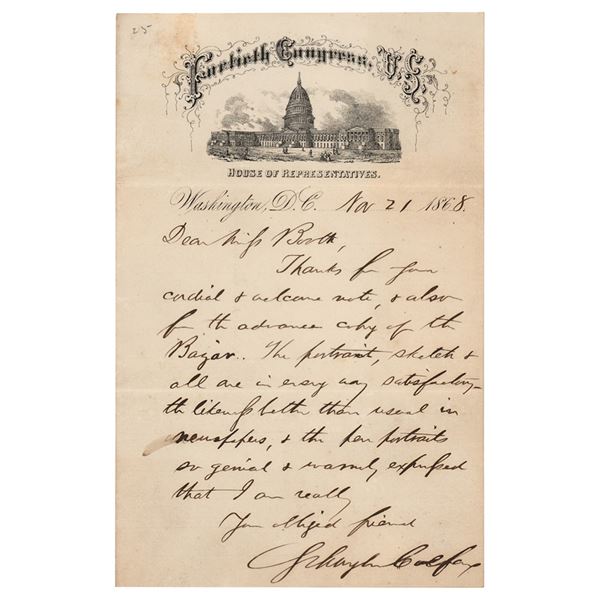 25
Fortieth Congress, U.S.
HOUSE OF REPRESENTATIVES.
Washington, D.C. Nov 21 1868.
Dear Miss Booth,
Thanks for your
cordial & welcome note, & also
for the advance copy of the
Bazar. The portrait, sketch &
all are in every way satisfactory—
the likeness better than usual in
newspapers, & the pen portraits
so genial & warmly expressed
that I am really
Your obliged friend
Schuyler Colfax